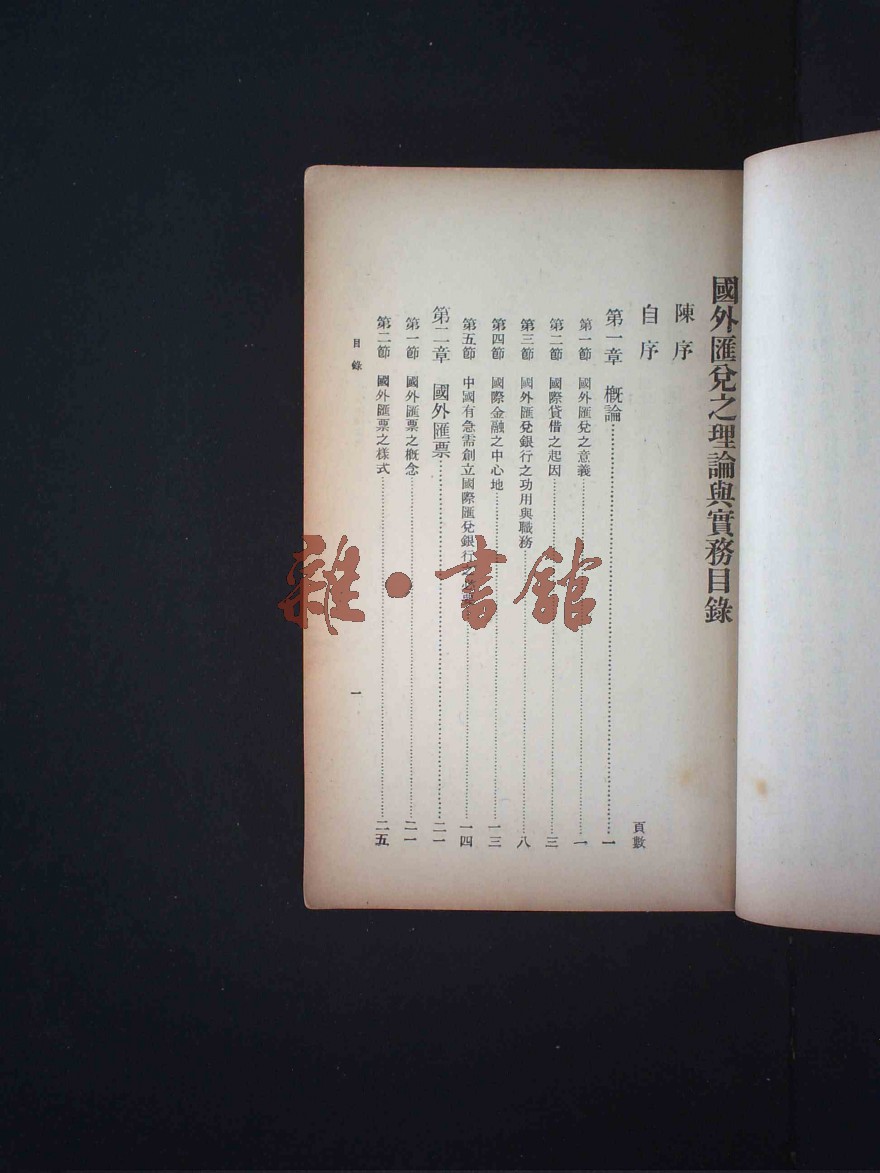 國外匯兌之理論與實務目錄
陳序
自序
頁數
第一章 概論……一
第一節 國外匯兌之意義……一
第二節 國際貸借之起因……三
第三節 國外匯兌銀行之功用與職務……八
第四節 國際金融之中心地……一三
第五節 中國有急需創立國際匯兌銀行……一四
第二章 國外匯票……二一
第一節 國外匯票之概念……二一
第二節 國外匯票之樣式……二五
目錄
一
雜·書館